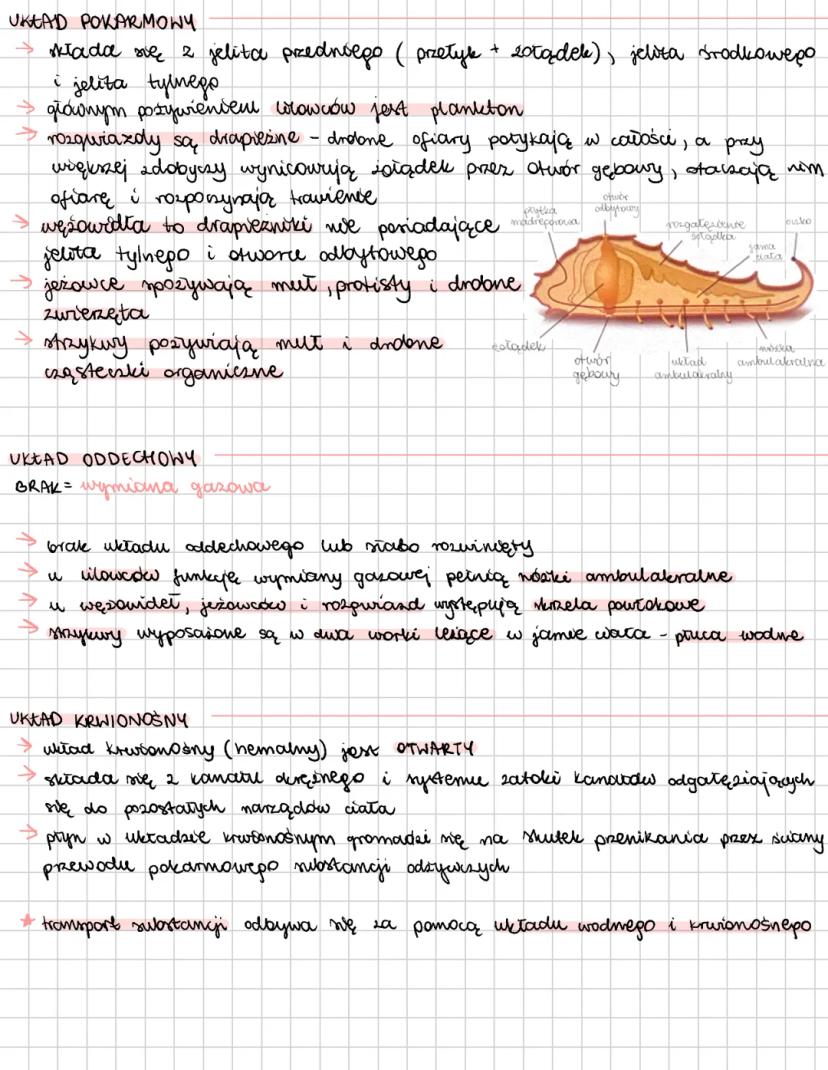 UKŁAD POKARMOWY
→ składa się z jelita przedniego (przełyk + żołądek), jelita środkowego
i jelita tylnego
→ głównym pożywieniem liliowców jest plankton
→ rozgwiazdy są drapieżne - drobne ofiary połykają w całości, a przy
większej zdobyczy wynicowują żołądek przez otwór gębowy, otaczają nim
ofiarę i rozpoczynają trawienie
→ wężowidła to drapieżniki nie posiadające
jelita tylnego i otworu odbytowego
→ jeżowce spożywają muł, protisty i drobne
zwierzęta
→ strzykwy pożywiają muł i drobne
cząsteczki organiczne
płytka
madreporowa
otwór
odbytowy
rozgałęzienie
żołądka
jama
ciała
oczko
żołądek
otwór
gębowy
układ
ambulakralny
nóżka
ambulakralna
UKŁAD ODDECHOWY
BRAK = wymiana gazowa
→ brak układu oddechowego lub słabo rozwinięty
→ u liliowców funkcję wymiany gazowej pełnią nóżki ambulakralne
→ u wężowideł, jeżowców i rozgwiazd występują skrzela powłokowe
→ strzykwy wyposażone są w dwa worki leżące w jamie ciała - płuca wodne
UKŁAD KRWIONOŚNY
→ układ krwionośny (hemalny) jest OTWARTY
→ składa się z kanału okrężnego i systemu zatoki kanałów odgałęziających
się do pozostałych narządów ciała
→ płyn w układzie krwionośnym gromadzi się na skutek przenikania przez ściany
przewodu pokarmowego substancji odżywczych
★ transport substancji odbywa się za pomocą układu wodnego i krwionośnego